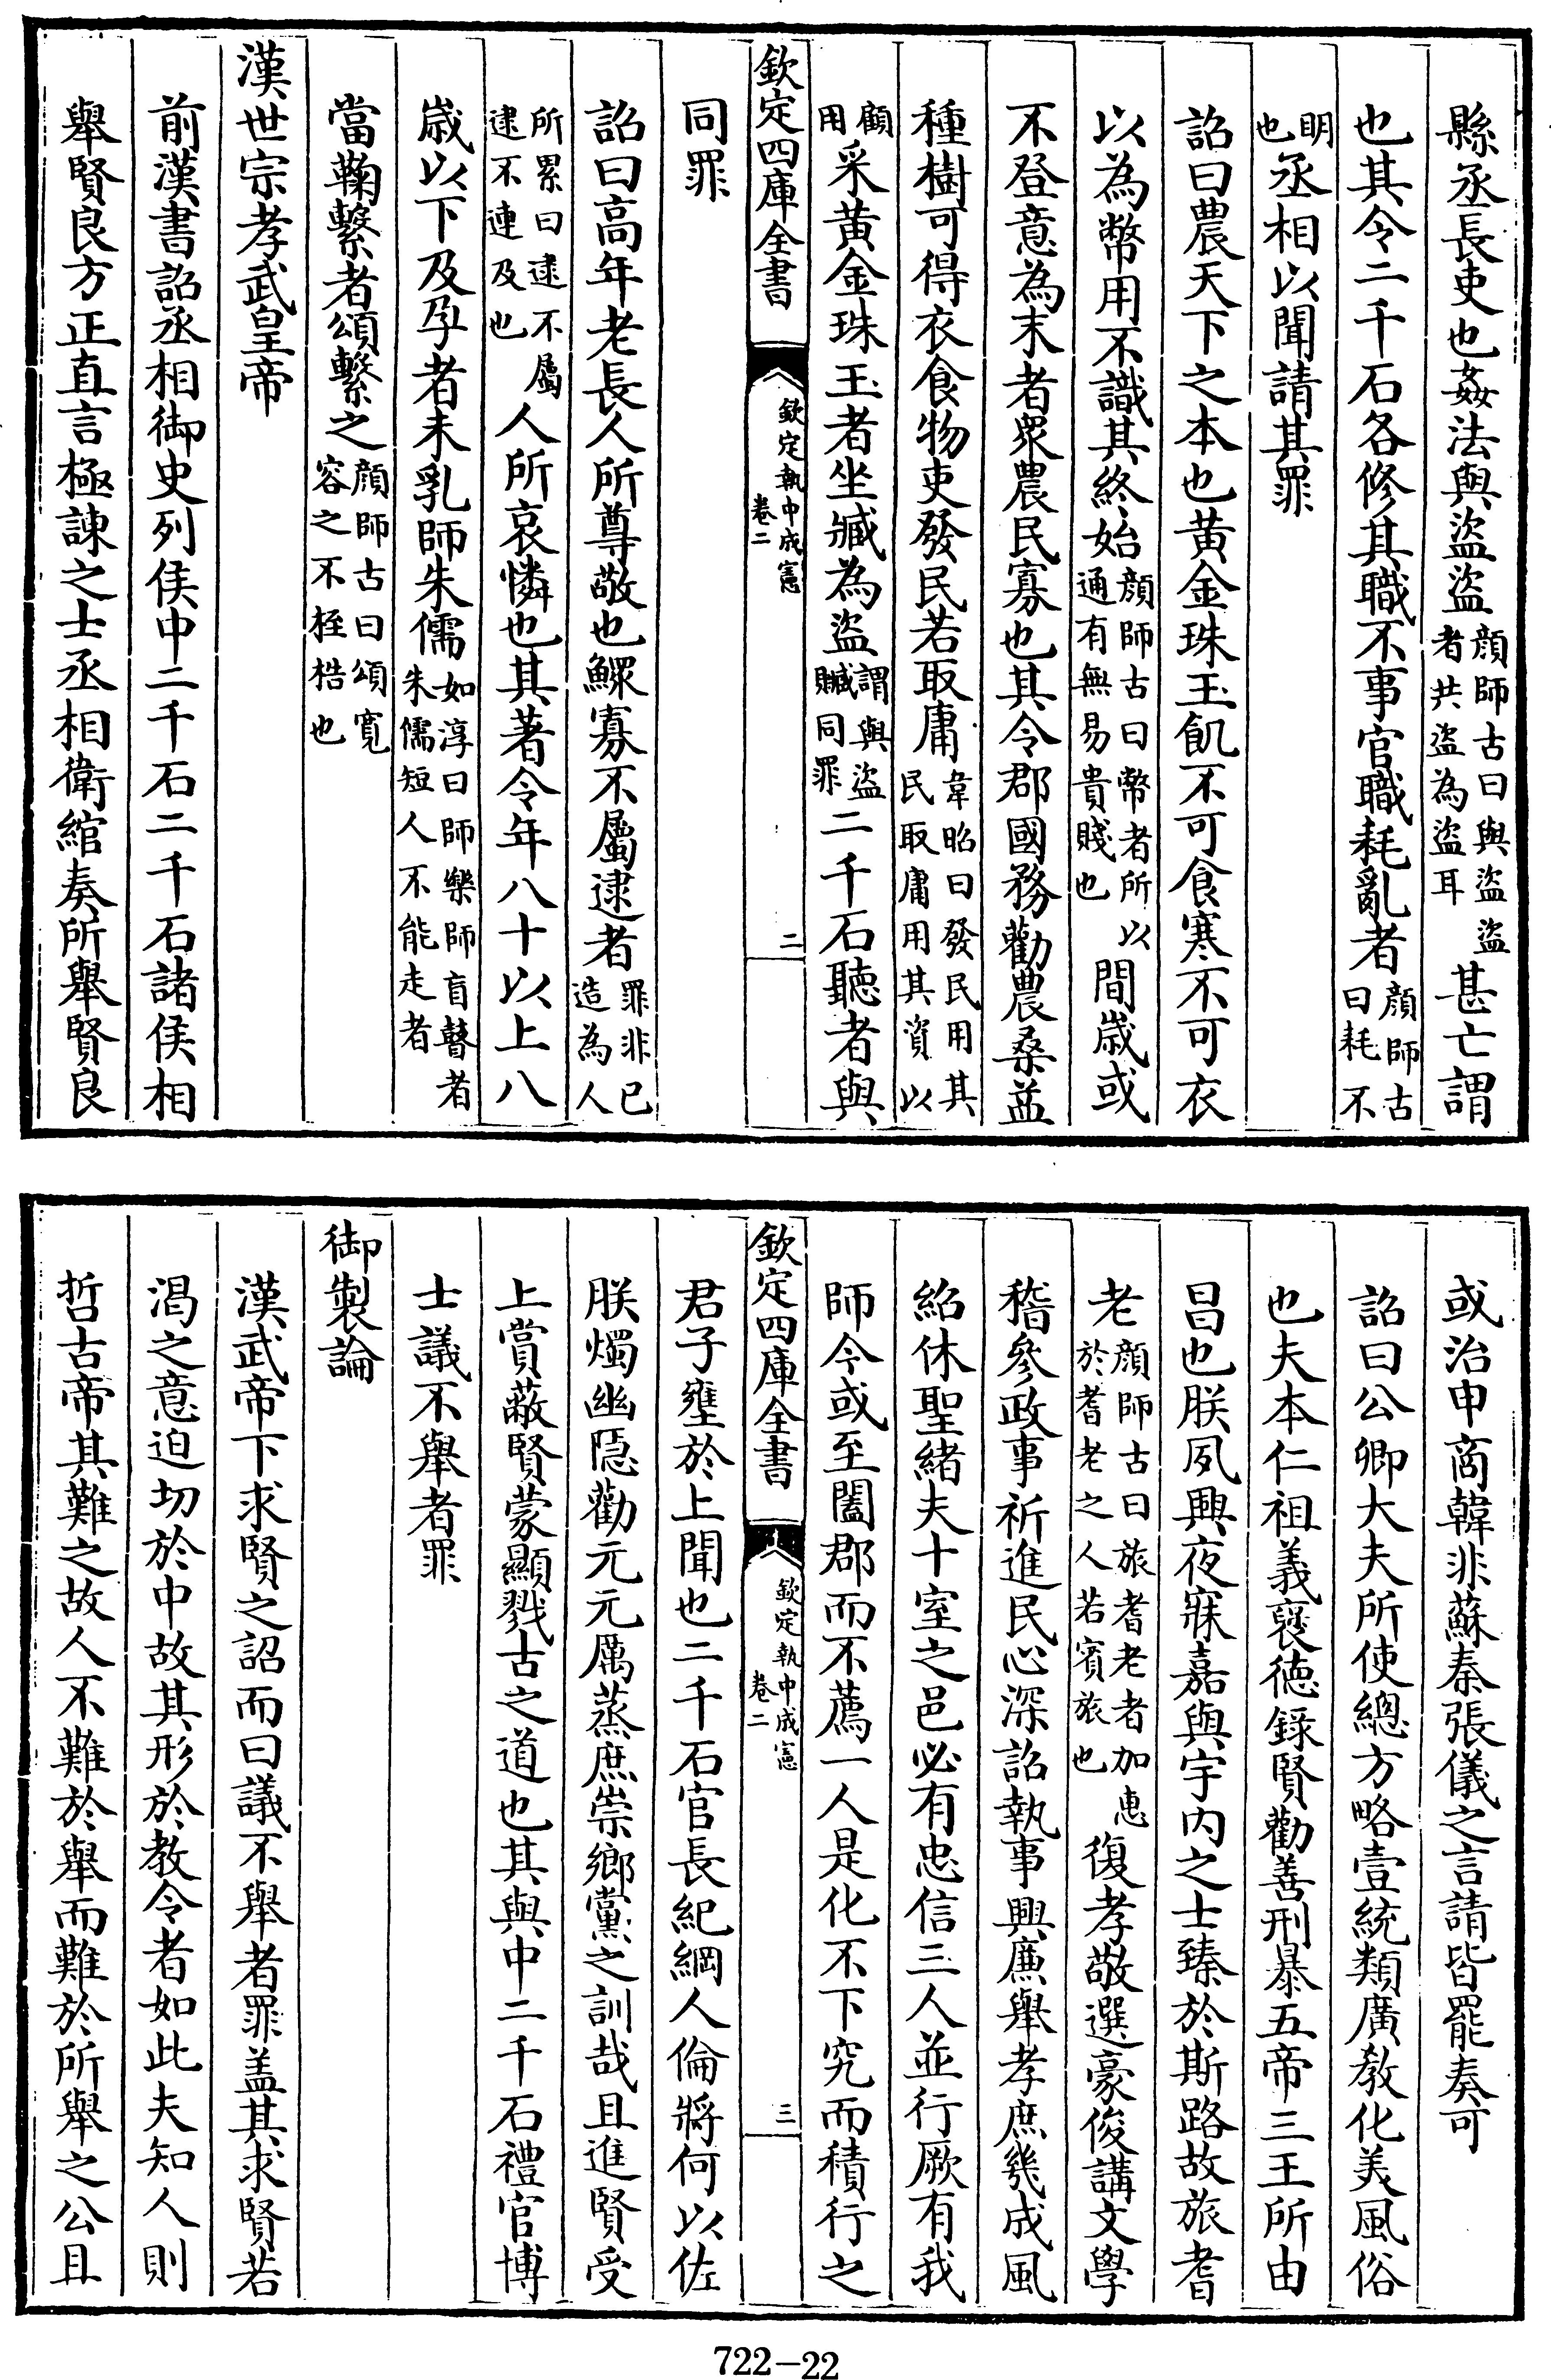 縣丞長吏也姦法與盜盜顔師古曰與盜盜者共盜為盜耳甚亡謂
也其令二千石各修其職不事官職耗亂者顔師古曰耗不
明也丞相以聞請其罪
詔曰農天下之本也黃金珠玉飢不可食寒不可衣
以為幣用不識其終始顔師古曰幣者所以通有無易貴賤也間歲或
不登意為末者眾農民寡也其令郡國務勸農桑益
種樹可得衣食物吏發民若取庸韋昭曰發民用其民取庸用其資以
顧用采黃金珠玉者坐臧為盜謂與盜贓同罪二千石聽者與
欽定四庫全書 欽定執中成憲 卷二 二
同罪
詔曰高年老長人所尊敬也鰥寡不屬逮者罪非已造為人
所累曰逮不屬逮不連及也人所哀憐也其著令年八十以上八
歲以下及孕者未乳師朱儒如淳曰師樂師盲瞽者朱儒短人不能走者
當鞠繫者頌繫之顔師古曰頌寬容之不桎梏也
漢世宗孝武皇帝
前漢書詔丞相御史列侯中二千石二千石諸侯相
舉賢良方正直言極諫之士丞相衛綰奏所舉賢良
或治申商韓非蘇秦張儀之言請皆罷奏可
詔曰公卿大夫所使總方略壹統類廣教化美風俗
也夫本仁祖義襃德錄賢勸善刑暴五帝三王所由
昌也朕夙興夜寐嘉與宇內之士臻於斯路故旅耆
老顔師古曰旅耆老者加惠於耆老之人若賓旅也復孝敬選豪俊講文學
稽參政事祈進民心深詔執事興廉舉孝庶幾成風
紹休聖緒夫十室之邑必有忠信三人並行厥有我
師今或至闔郡而不薦一人是化不下究而積行之
欽定四庫全書 欽定執中成憲 卷二 三
君子壅於上聞也二千石官長紀綱人倫將何以佐
朕燭幽隱勸元元厲蒸庶崇鄉黨之訓哉且進賢受
上賞蔽賢蒙顯戮古之道也其與中二千石禮官博
士議不舉者罪
御製論
漢武帝下求賢之詔而曰議不舉者罪盖其求賢若
渴之意迫切於中故其形於教令者如此夫知人則
哲古帝其難之故人不難於舉而難於所舉之公且
722-22